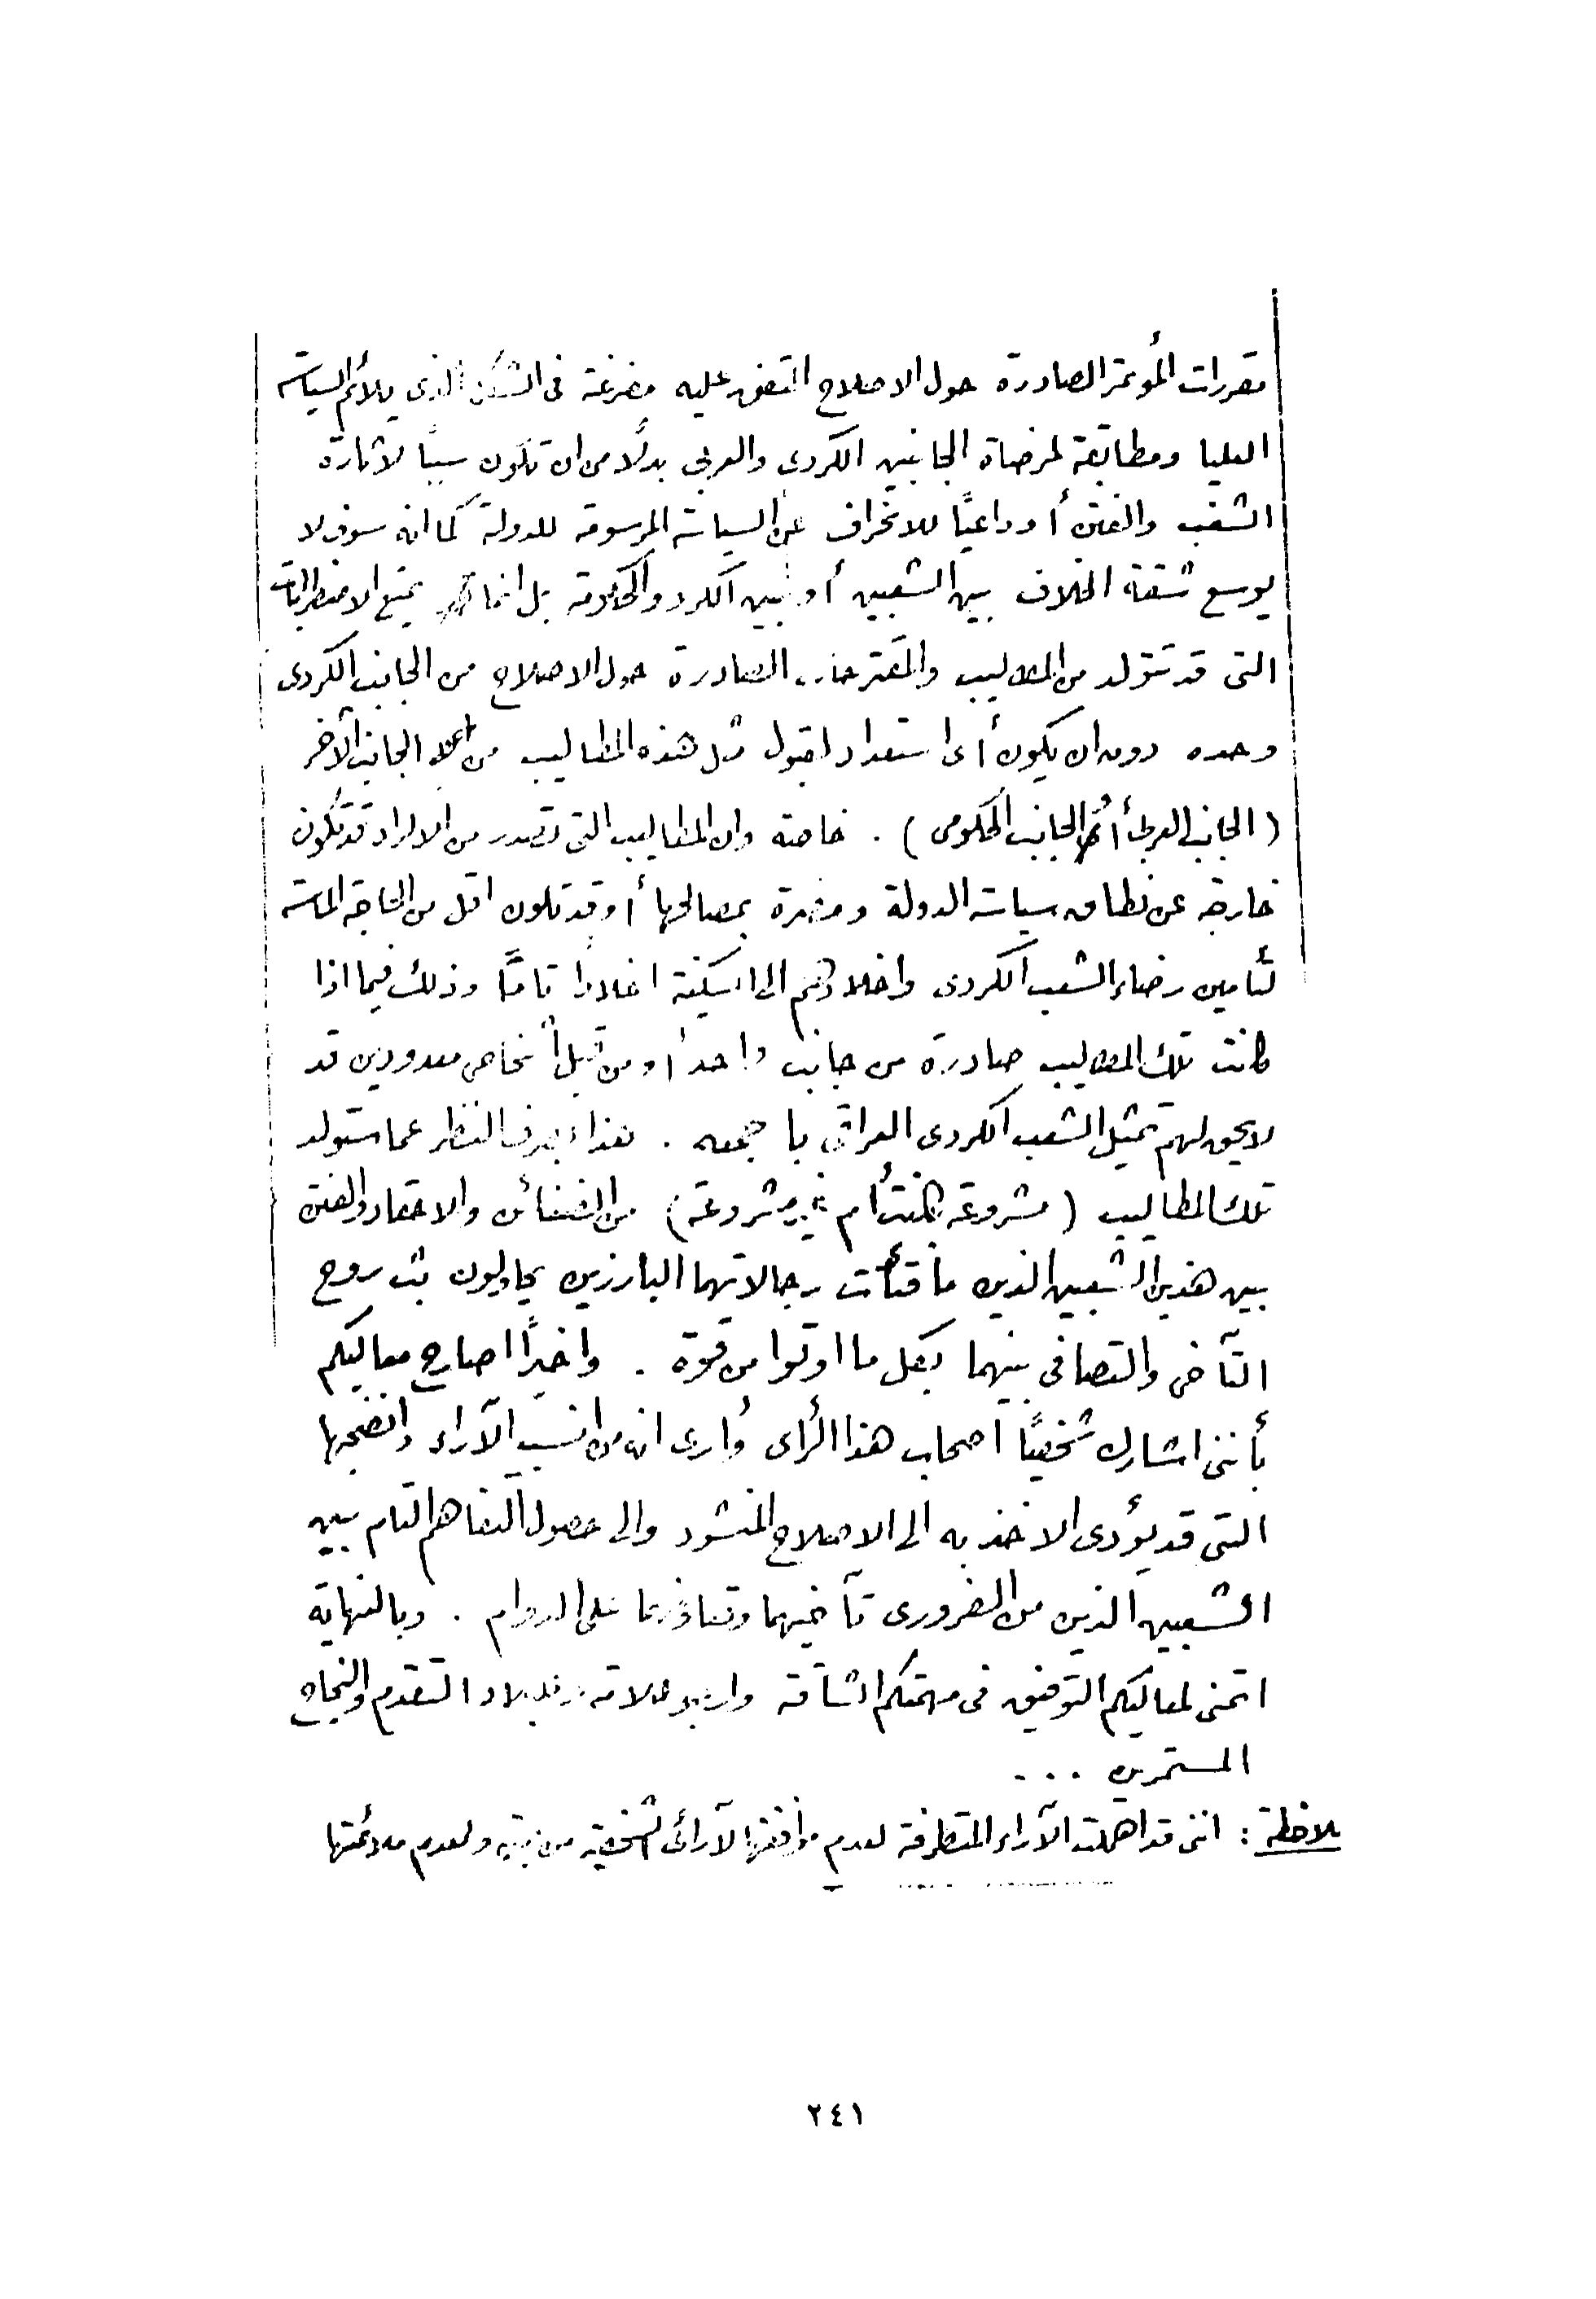 مقررات المؤتمر الصادرة حول الاصلاح المتفق عليه مفرغة فى الشكل الذى يلائم السياسة
العليا ومطابقة لمرضاة الجانبين الكردى والعربى بدلًا من ان تكون سببًا لاثارة
الشغب والفتن أو داعيًا للانحراف عن السياسة المرسومة للدولة كما انه سوف لا
يوسع شقة الخلاف بين الشعبين أو بين الكرد والحكومة بل انما يمنع الاضطرابات
التى قد تتولد من المطاليب والمقترحات الصادرة حول الاصلاح من الجانب الكردى
وحده دون ان يكون أى استعداد لقبول مثل هذه المطاليب من الجانب الآخر
(الجانب العربى أم الجانب الحكومى) . خاصة وان المطاليب التى تصدر من الاكراد قد تكون
خارجة عن نطاق سياسة الدولة ومضرة بمصالحها أو قد تكون اقل من الحاجة الماسة
لتأمين رضاء الشعب الكردى واخلادهم الى السكينة اخلادًا تامًا وذلك فيما اذا
كانت تلك المطاليب صادرة من جانب واحد أو من قبل أشخاص معدودين قد
لا يحق لهم تمثيل الشعب الكردى العراقى باجمعه . هذا بصرف النظر عما ستولد
تلك المطاليب (مشروعة كانت أم غير مشروعة) من الضغائن والاحقاد والفتن
بين هذين الشعبين الذين ما فتأت رجالاتهما البارزين يحاولون بث روح
التآخى والتصافى بينهما بكل ما اوتوا من قوة . واخيرًا اصارح معاليكم
بأننى اشارك شخصيًا اصحاب هذا الرأى وأرى انه من انسب الآراء وانضجها
التى قد يؤدى الاخذ به الى الاصلاح المنشود والى حصول التفاهم التام بين
الشعبين الذين من الضرورى تآخيهما وتصافيهما على الدوام . وبالنهاية
اتمنى لمعاليكم التوفيق فى مهمتكم الشاقة وارجو للبلاد التقدم والنجاح
المستمرين ...
ملاحظة : اننى قد اهملت الآراء المتطرفة لعدم موافقتها لآرائى الشخصية من جهة ولعدم ملائمتها
٢٤١